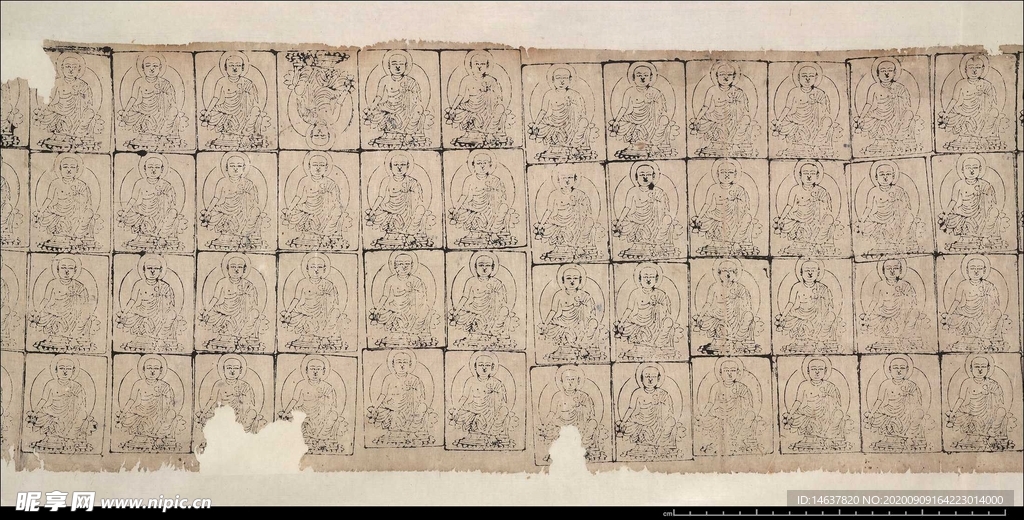 昵享网 www.nipic.cn
ID:14637820 NO:20200909164223014000
cm